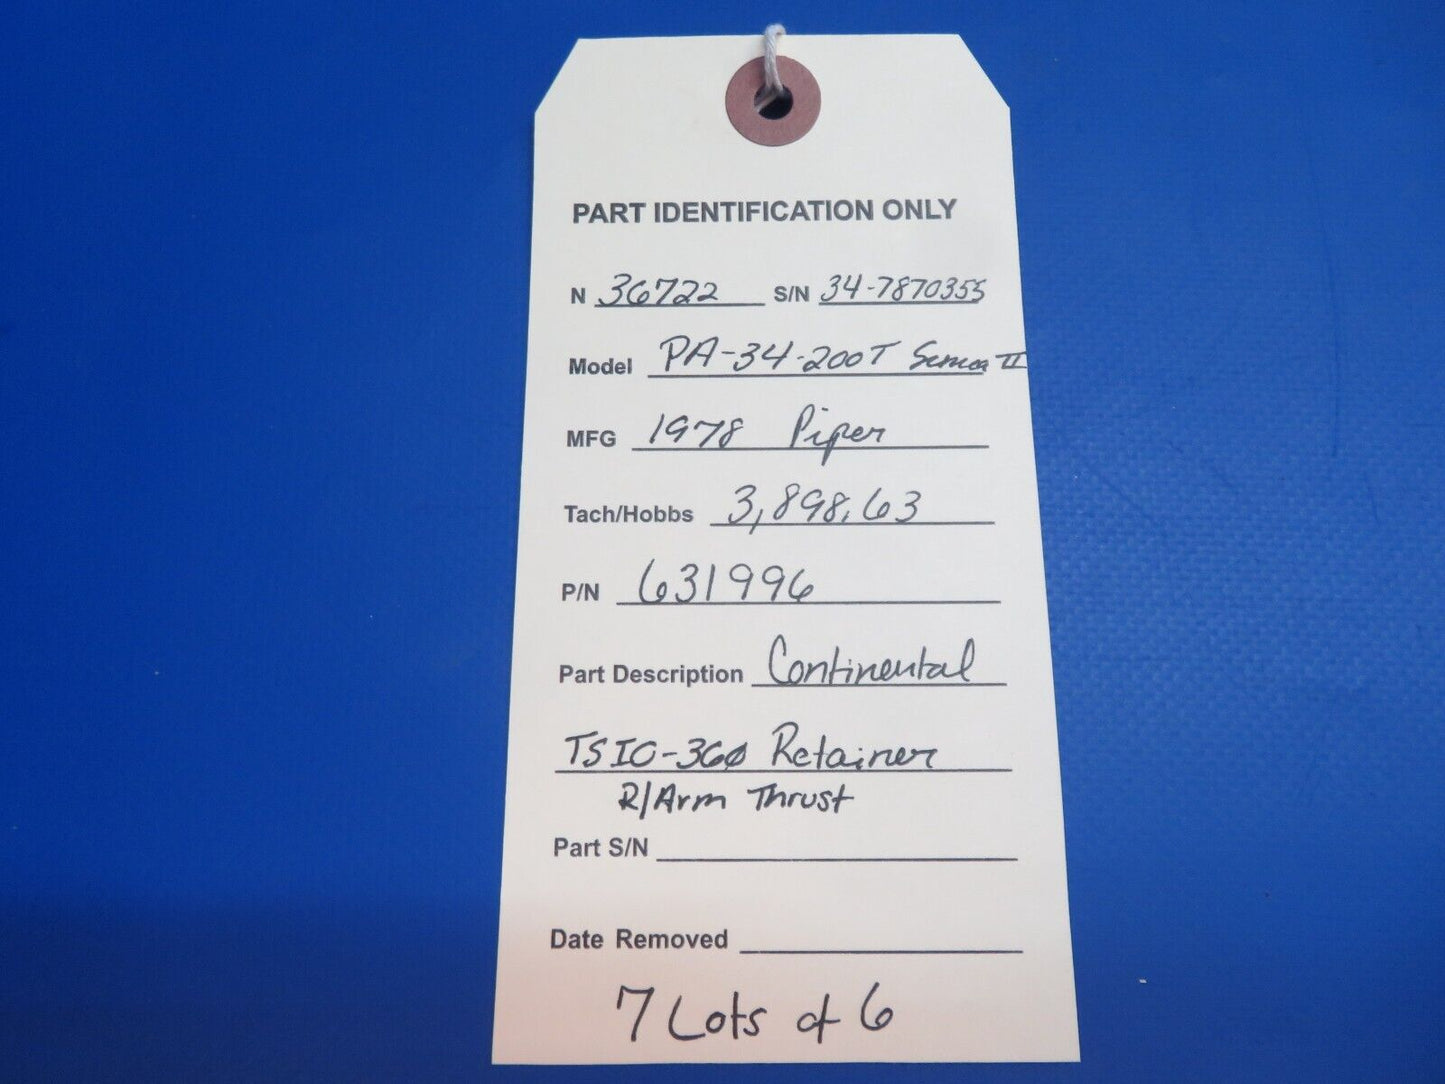 PART IDENTIFICATION ONLY
N 36722 S/N 34-7870355
Model PA-34-200T Seneca II
MFG 1978 Piper
Tach/Hobbs 3,898.63
P/N 631996
Part Description Continental
TSIO-360 Retainer
R/Arm Thrust
Part S/N
Date Removed
7 Lots of 6